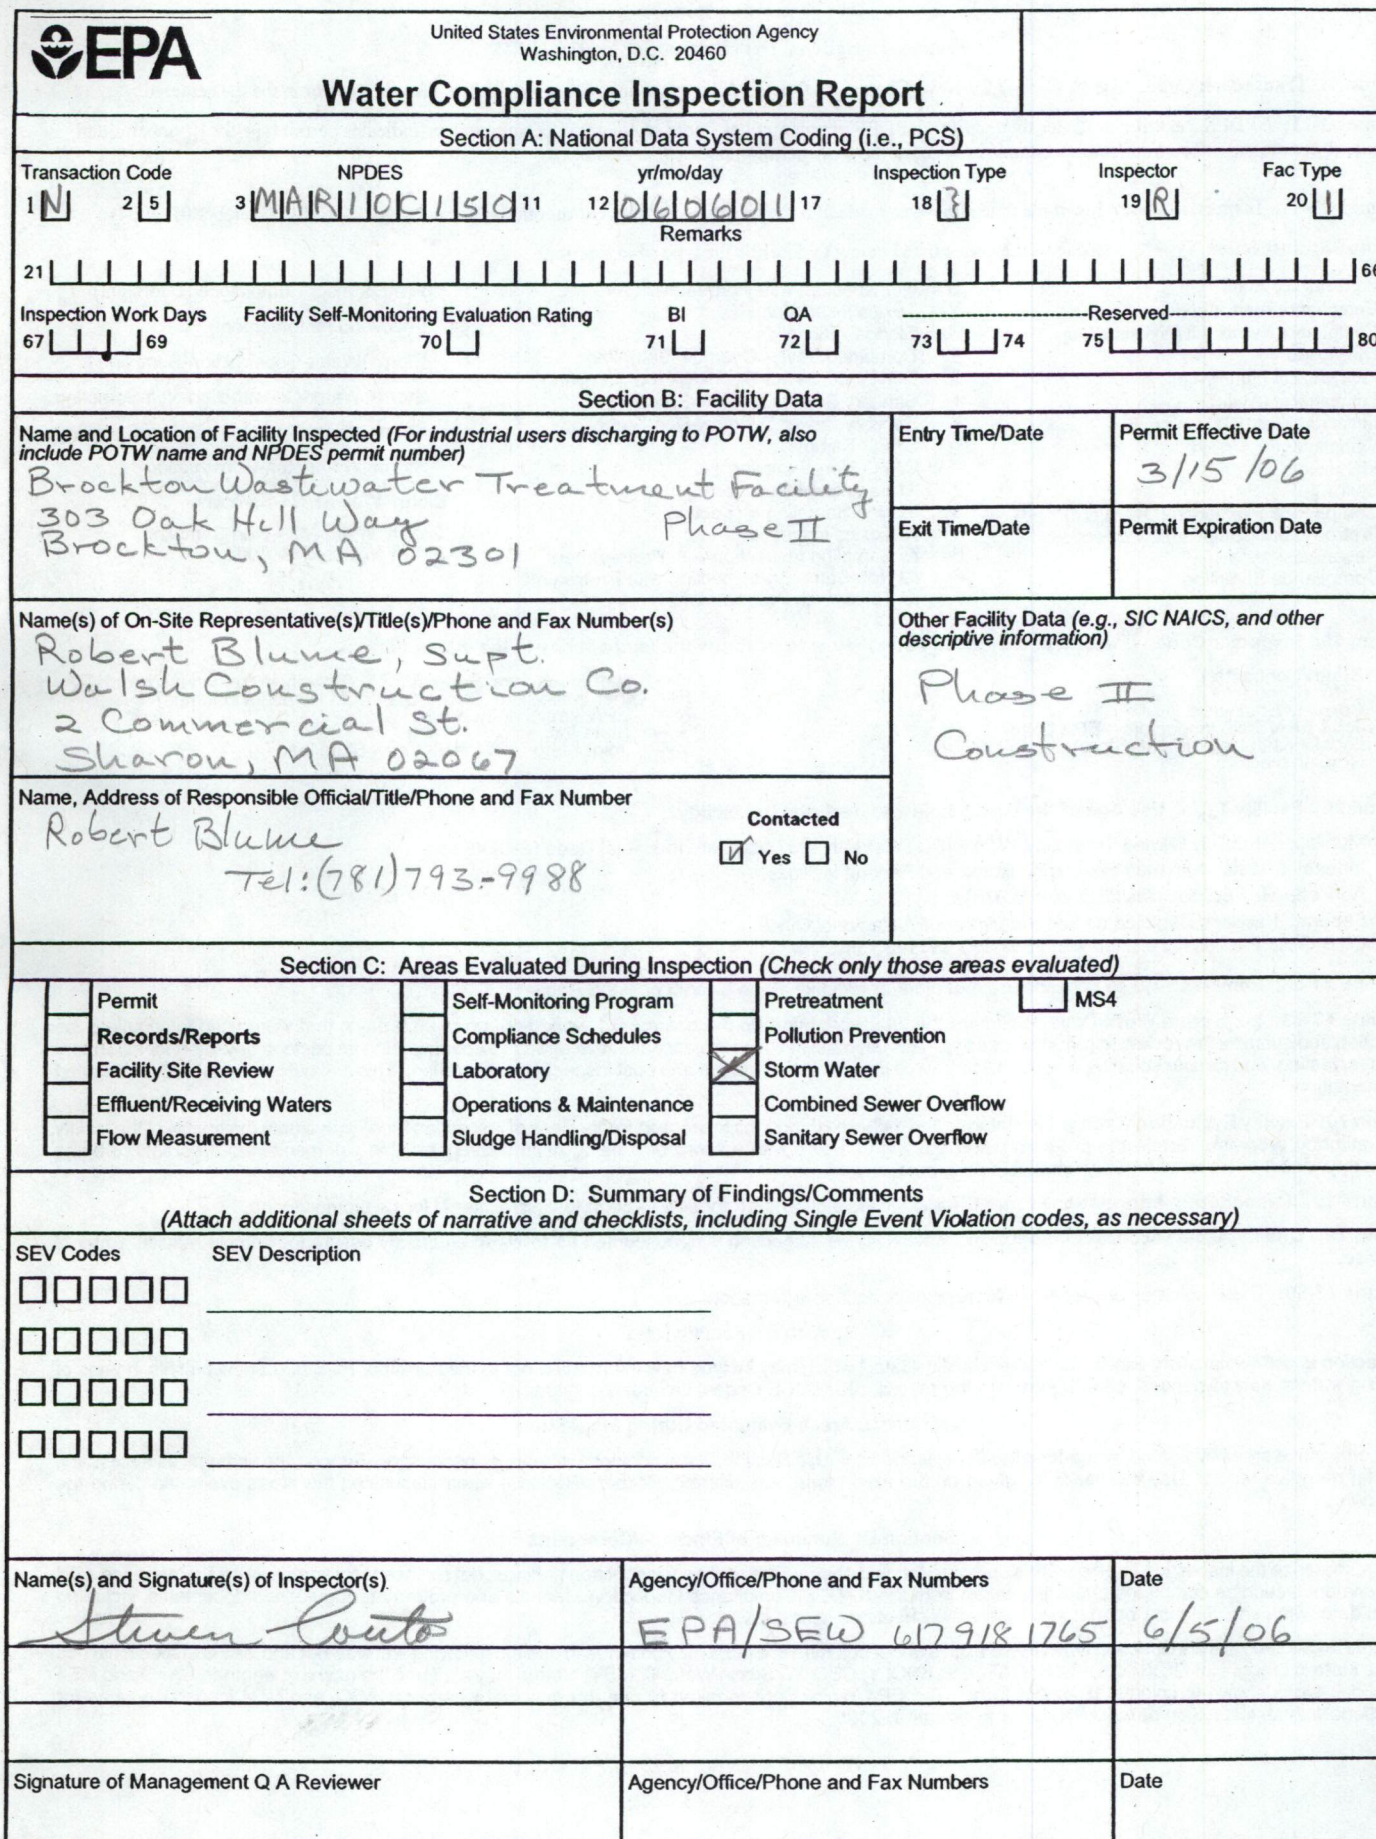 EPA
United States Environmental Protection Agency
Washington, D.C. 20460
Water Compliance Inspection Report
Section A: National Data System Coding (i.e., PCS)
Transaction Code NPDES yr/mo/day Inspection Type Inspector Fac Type
1 N 2 5 3 MAR10C150 11 12 060601 17 18 } 19 R 20 1
Remarks
21 66
Inspection Work Days Facility Self-Monitoring Evaluation Rating BI QA ---Reserved---
67 69 70 71 72 73 74 75 80
Section B: Facility Data
Name and Location of Facility Inspected (For industrial users discharging to POTW, also
include POTW name and NPDES permit number)
Brockton Wastewater Treatment Facility
303 Oak Hill Way Phase II
Brockton, MA 02301
Entry Time/Date
Permit Effective Date
3/15/06
Exit Time/Date
Permit Expiration Date
Name(s) of On-Site Representative(s)/Title(s)/Phone and Fax Number(s)
Robert Blume, Supt.
Walsh Construction Co.
2 Commercial St.
Sharon, MA 02067
Other Facility Data (e.g., SIC NAICS, and other
descriptive information)
Phase II
Construction
Name, Address of Responsible Official/Title/Phone and Fax Number
Robert Blume
Tel: (781) 793-9988
Contacted
Yes No
Section C: Areas Evaluated During Inspection (Check only those areas evaluated)
Permit Self-Monitoring Program Pretreatment MS4
Records/Reports Compliance Schedules Pollution Prevention
Facility Site Review Laboratory Storm Water
Effluent/Receiving Waters Operations & Maintenance Combined Sewer Overflow
Flow Measurement Sludge Handling/Disposal Sanitary Sewer Overflow
Section D: Summary of Findings/Comments
(Attach additional sheets of narrative and checklists, including Single Event Violation codes, as necessary)
SEV Codes SEV Description
Name(s) and Signature(s) of Inspector(s) Agency/Office/Phone and Fax Numbers Date
Steven Couto EPA/SEW 617 918 1765 6/5/06
Signature of Management Q A Reviewer Agency/Office/Phone and Fax Numbers Date